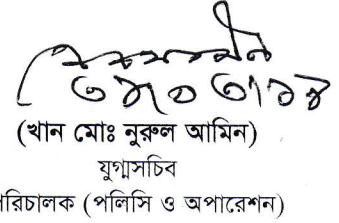 (খান মোঃ নুরুল আমিন)
যুগ্মসচিব
রিচালক (পলিসি ও অপারেশন)